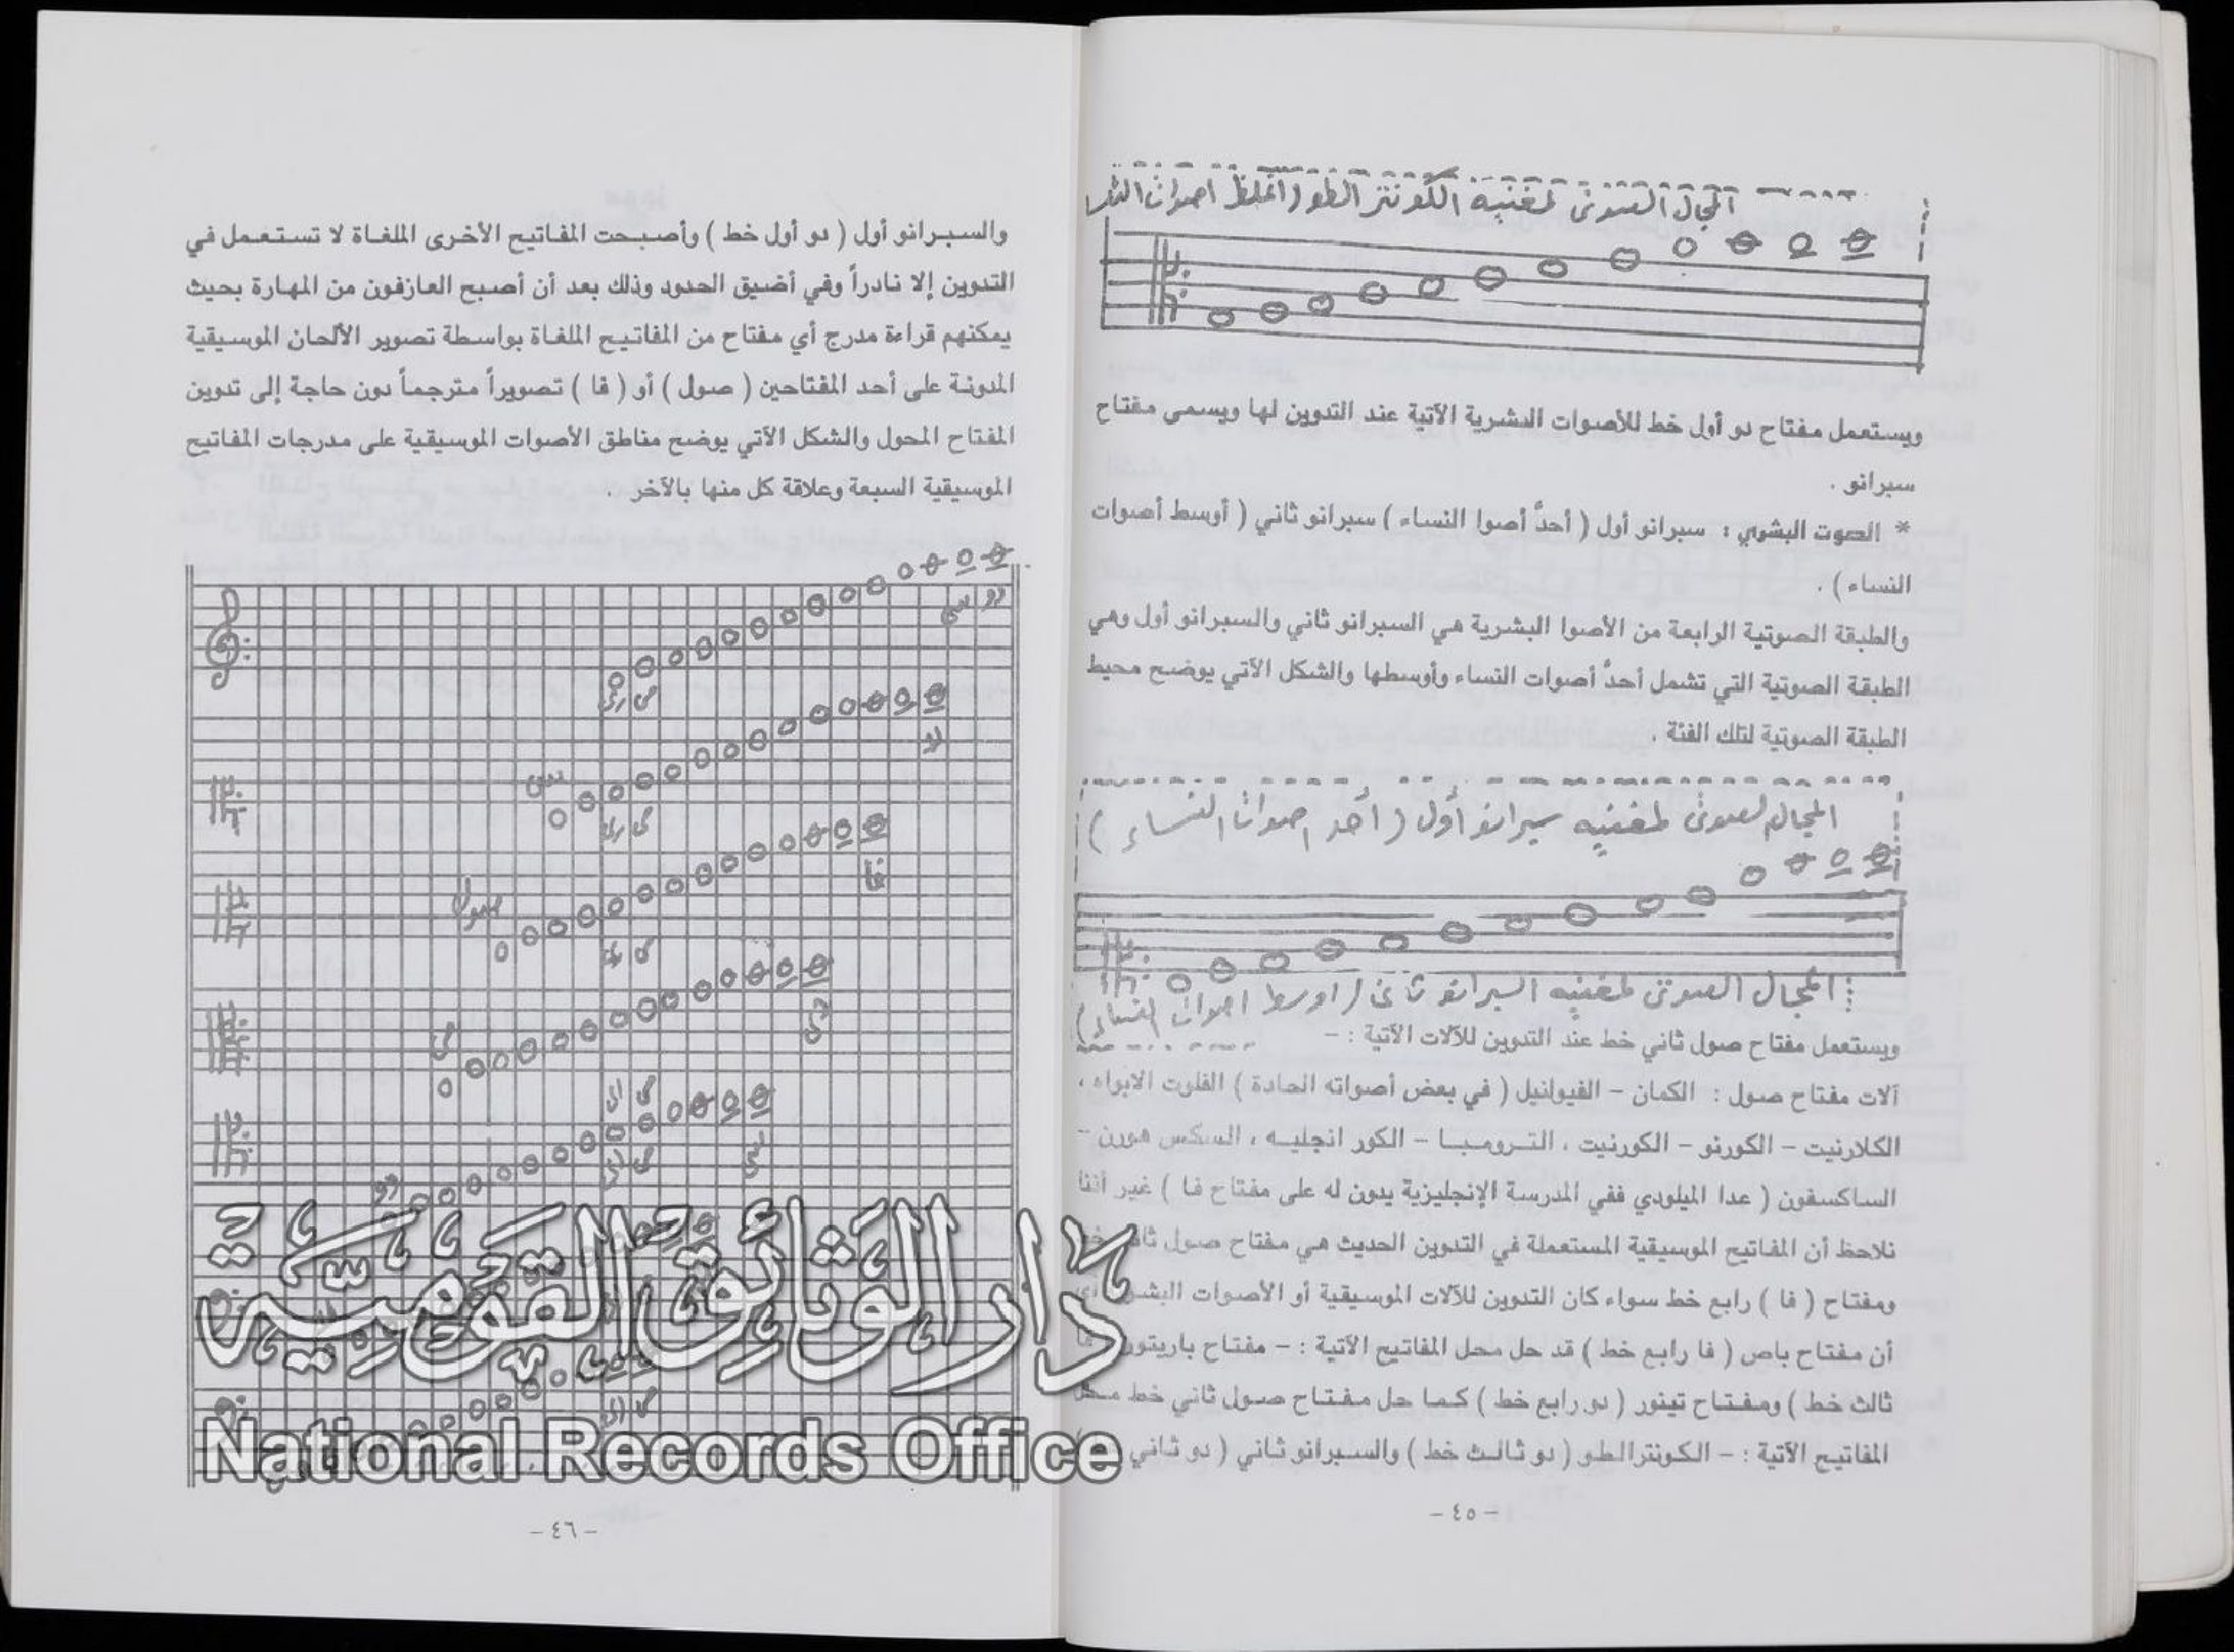 المجال الصوتى لمغنيه الكونترالطو ( اغلظ اصوات
ويستعمل مفتاح دو أول خط للأصوات البشرية الآتية عند التدوين لها ويسمى مفتاح
سبرانو .
* الصوت البشوي : سبرانو أول ( أحدَّ أصوا النساء ) سبرانو ثاني ( أوسط أصوات
النساء ) .
والطبقة الصوتية الرابعة من الأصوا البشرية هي السبرانو ثاني والسبرانو أول وهي
الطبقة الصوتية التي تشمل أحدَّ أصوات النساء وأوسطها والشكل الآتي يوضح محيط
الطبقة الصوتية لتلك الفئة .
المجال الصوتى لمغنيه سبرانو أول ( أحد اصوات النساء )
المجال الصوتى لمغنيه السبرانو ثانى ( اوسط اصوات النساء )
ويستعمل مفتاح صول ثاني خط عند التدوين للآلات الآتية : -
آلات مفتاح صول : الكمان - الفيولنيل ( في بعض أصواته الحادة ) الفلوت الابواه ،
الكلارنيت - الكورنو - الكورنيت ، الترومبا - الكور انجليه ، السكس هورن -
الساكسفون ( عدا الميلودي ففي المدرسة الإنجليزية يدون له على مفتاح فا ) غير أننا
نلاحظ أن المفاتيح الموسيقية المستعملة في التدوين الحديث هي مفتاح صول ثاني خط
ومفتاح ( فا ) رابع خط سواء كان التدوين للآلات الموسيقية أو الأصوات
أن مفتاح باص ( فا رابع خط ) قد حل محل المفاتيح الآتية : - مفتاح باريتون
ثالث خط ) ومفتاح تينور ( دو رابع خط ) كما حل مفتاح صول ثاني خط محل
المفاتيح الآتية : - الكونترالطو ( دو ثالث خط ) والسبرانو ثاني ( دو ثاني
- ٤٥ -
والسبرانو أول ( دو أول خط ) وأصبحت المفاتيح الأخرى الملغاة لا تستعمل في
التدوين إلا نادراً وفي أضيق الحدود وذلك بعد أن أصبح العازفون من المهارة بحيث
يمكنهم قراءة مدرج أي مفتاح من المفاتيح الملغاة بواسطة تصوير الألحان الموسيقية
المدونة على أحد المفتاحين ( صول ) أو ( فا ) تصويراً مترجماً دون حاجة إلى تدوين
المفتاح المحول والشكل الآتي يوضح مناطق الأصوات الموسيقية على مدرجات المفاتيح
الموسيقية السبعة وعلاقة كل منها بالآخر .
دو سى
رى مى
لا
سى
رى مى
فا
صول
مى
رى
سى
دو
دار الوثائق القومية
National Records Office
- ٤٦ -